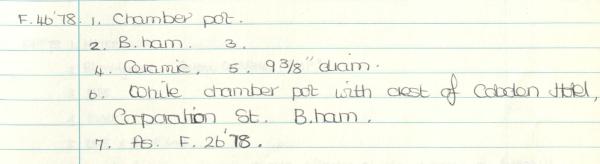 F.46'78. 1. Chamber pot.
2. B.ham. 3.
4. Ceramic. 5. 9 3/8" diam.
6. White chamber pot with crest of Cobden Hotel,
Corporation St. B.ham.
7. As. F. 26'78.